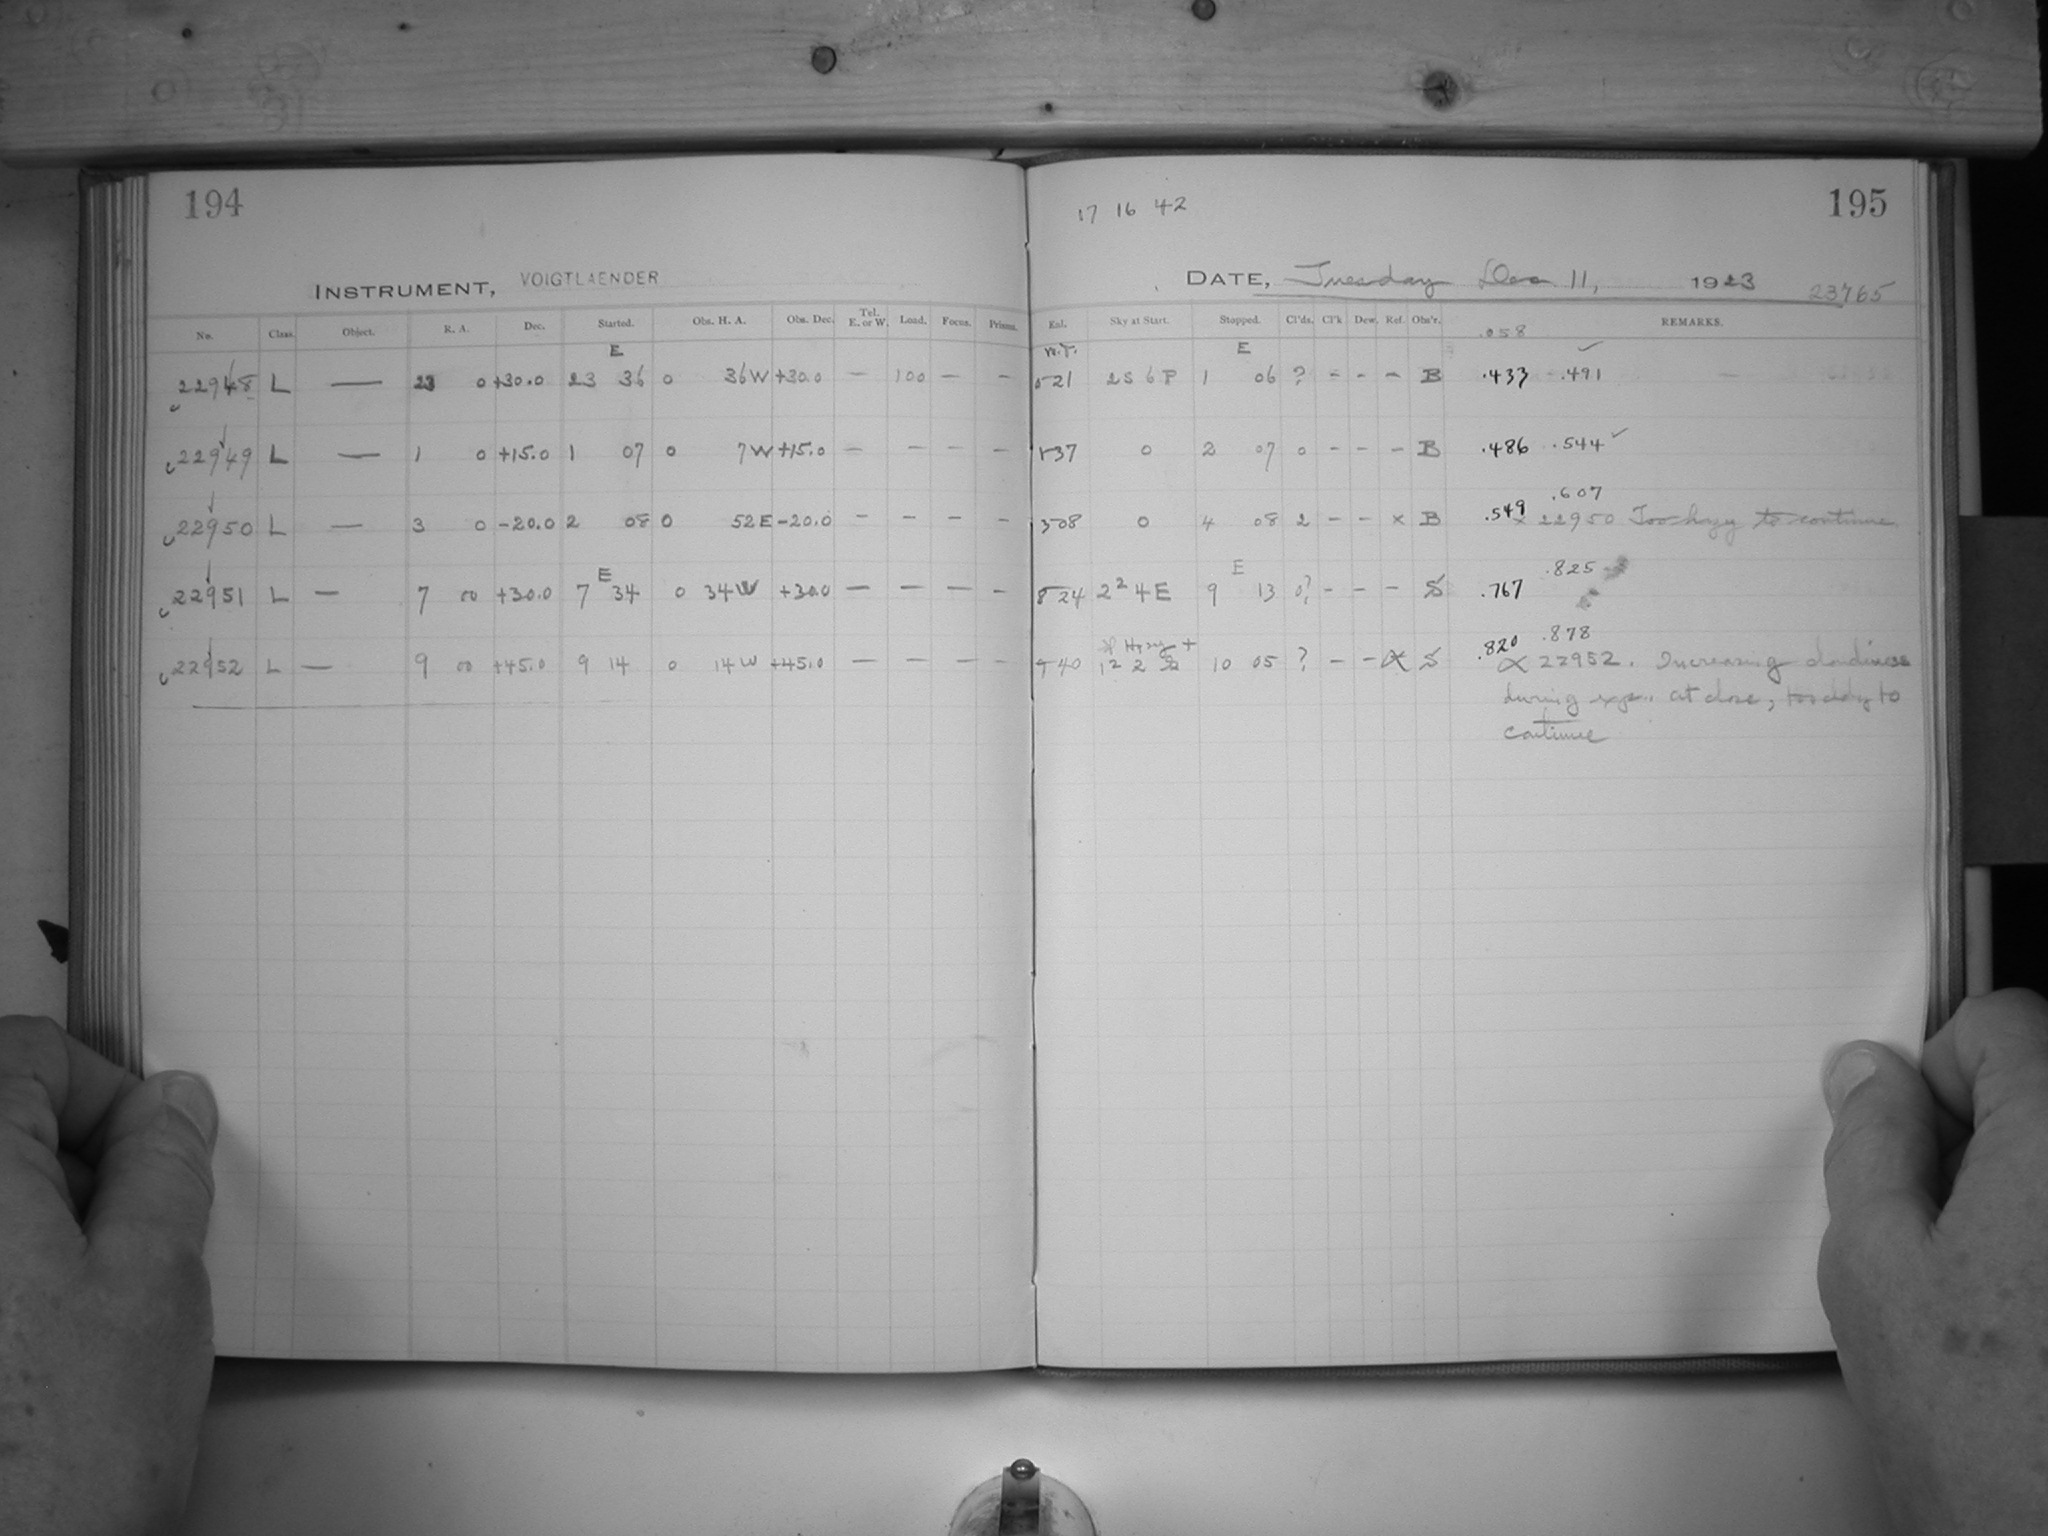 194
17 16 42
195
INSTRUMENT, VOIGTLAENDER
DATE, Tuesday Dec 11, 1923 23765
No. Class. Object. R. A. Dec. Started. Obs. H. A. Obs. Dec. Tel. E. or W. Load. Focus. Prisms. Enl. Sky at Start. Stopped. Cl'ds. Cl'k Dew. Ref. Obs'r. .058 REMARKS.
E W.T. E
22948 L — 23 0 +30.0 23 36 0 36W +30.0 — 100 — — 521 2S 6 P 1 06 ? - - - B .433 .491
22949 L — 1 0 +15.0 1 07 0 7W +15.0 — — — — 137 0 2 07 0 - - - B .486 .544
.607
22950 L — 3 0 -20.0 2 08 0 52E -20.0 — — — — 308 0 4 08 2 - - x B .549 x 22950 Too hazy to continue
E E .825
22951 L — 7 00 +30.0 7 34 0 34W +30.0 — — — — 8 24 2² 4 E 9 13 0? - - - S .767
Hazy + .820 .878
22952 L — 9 00 +45.0 9 14 0 14W +45.0 — — — — 40 1² 2 10 05 ? - - α S α 22952. Increasing cloudiness
during exp.. at close, too cldy to
continue